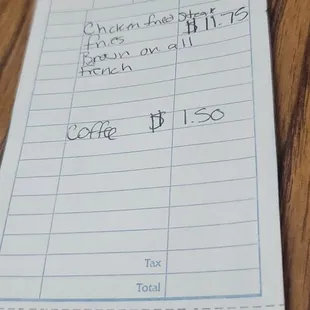 Chicken fried Steak
fries $11.75
Brown on all
french
Coffee $ 1.50
Tax
Total